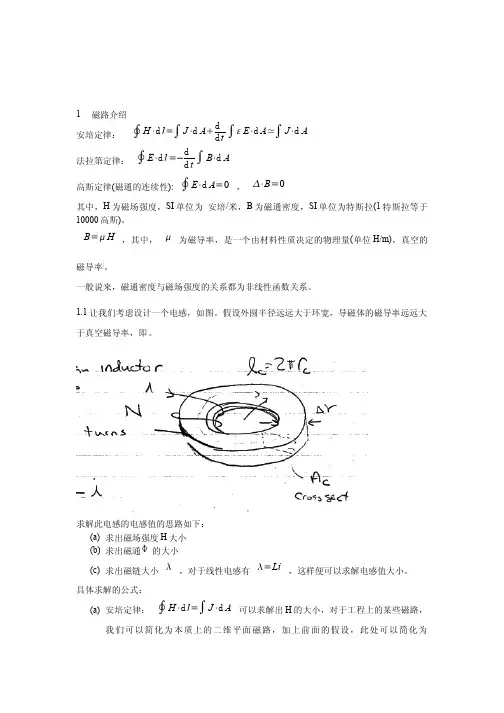 1 磁路介绍
安培定律： ∮H·dl=∫J·dA+d/dt∫εE·dA≃∫J·dA
法拉第定律： ∮E·dl=−d/dt∫B·dA
高斯定律(磁通的连续性): ∮E·dA=0 ， Δ·B=0
其中，H 为磁场强度，SI单位为 安培/米，B 为磁通密度，SI 单位为特斯拉(1 特斯拉等于
10000 高斯)。
B=μH ，其中， μ 为磁导率，是一个由材料性质决定的物理量(单位 H/m)，真空的
磁导率。
一般说来，磁通密度与磁场强度的关系都为非线性函数关系。
1.1 让我们考虑设计一个电感，如图。假设外圆半径远远大于环宽，导磁体的磁导率远远大
于真空磁导率，即。
inductor
lc=2πrc
N
turns
Δr
Ac
cross sect
求解此电感的电感值的思路如下：
(a) 求出磁场强度 H 大小
(b) 求出磁通Φ 的大小
(c) 求出磁链大小 λ ，对于线性电感有 λ=Li ，这样便可以求解电感值大小。
具体求解的公式：
(a) 安培定律： ∮H·dl=∫J·dA 可以求解出 H 的大小，对于工程上的某些磁路，
我们可以简化为本质上的二维平面磁路，加上前面的假设，此处可以简化为